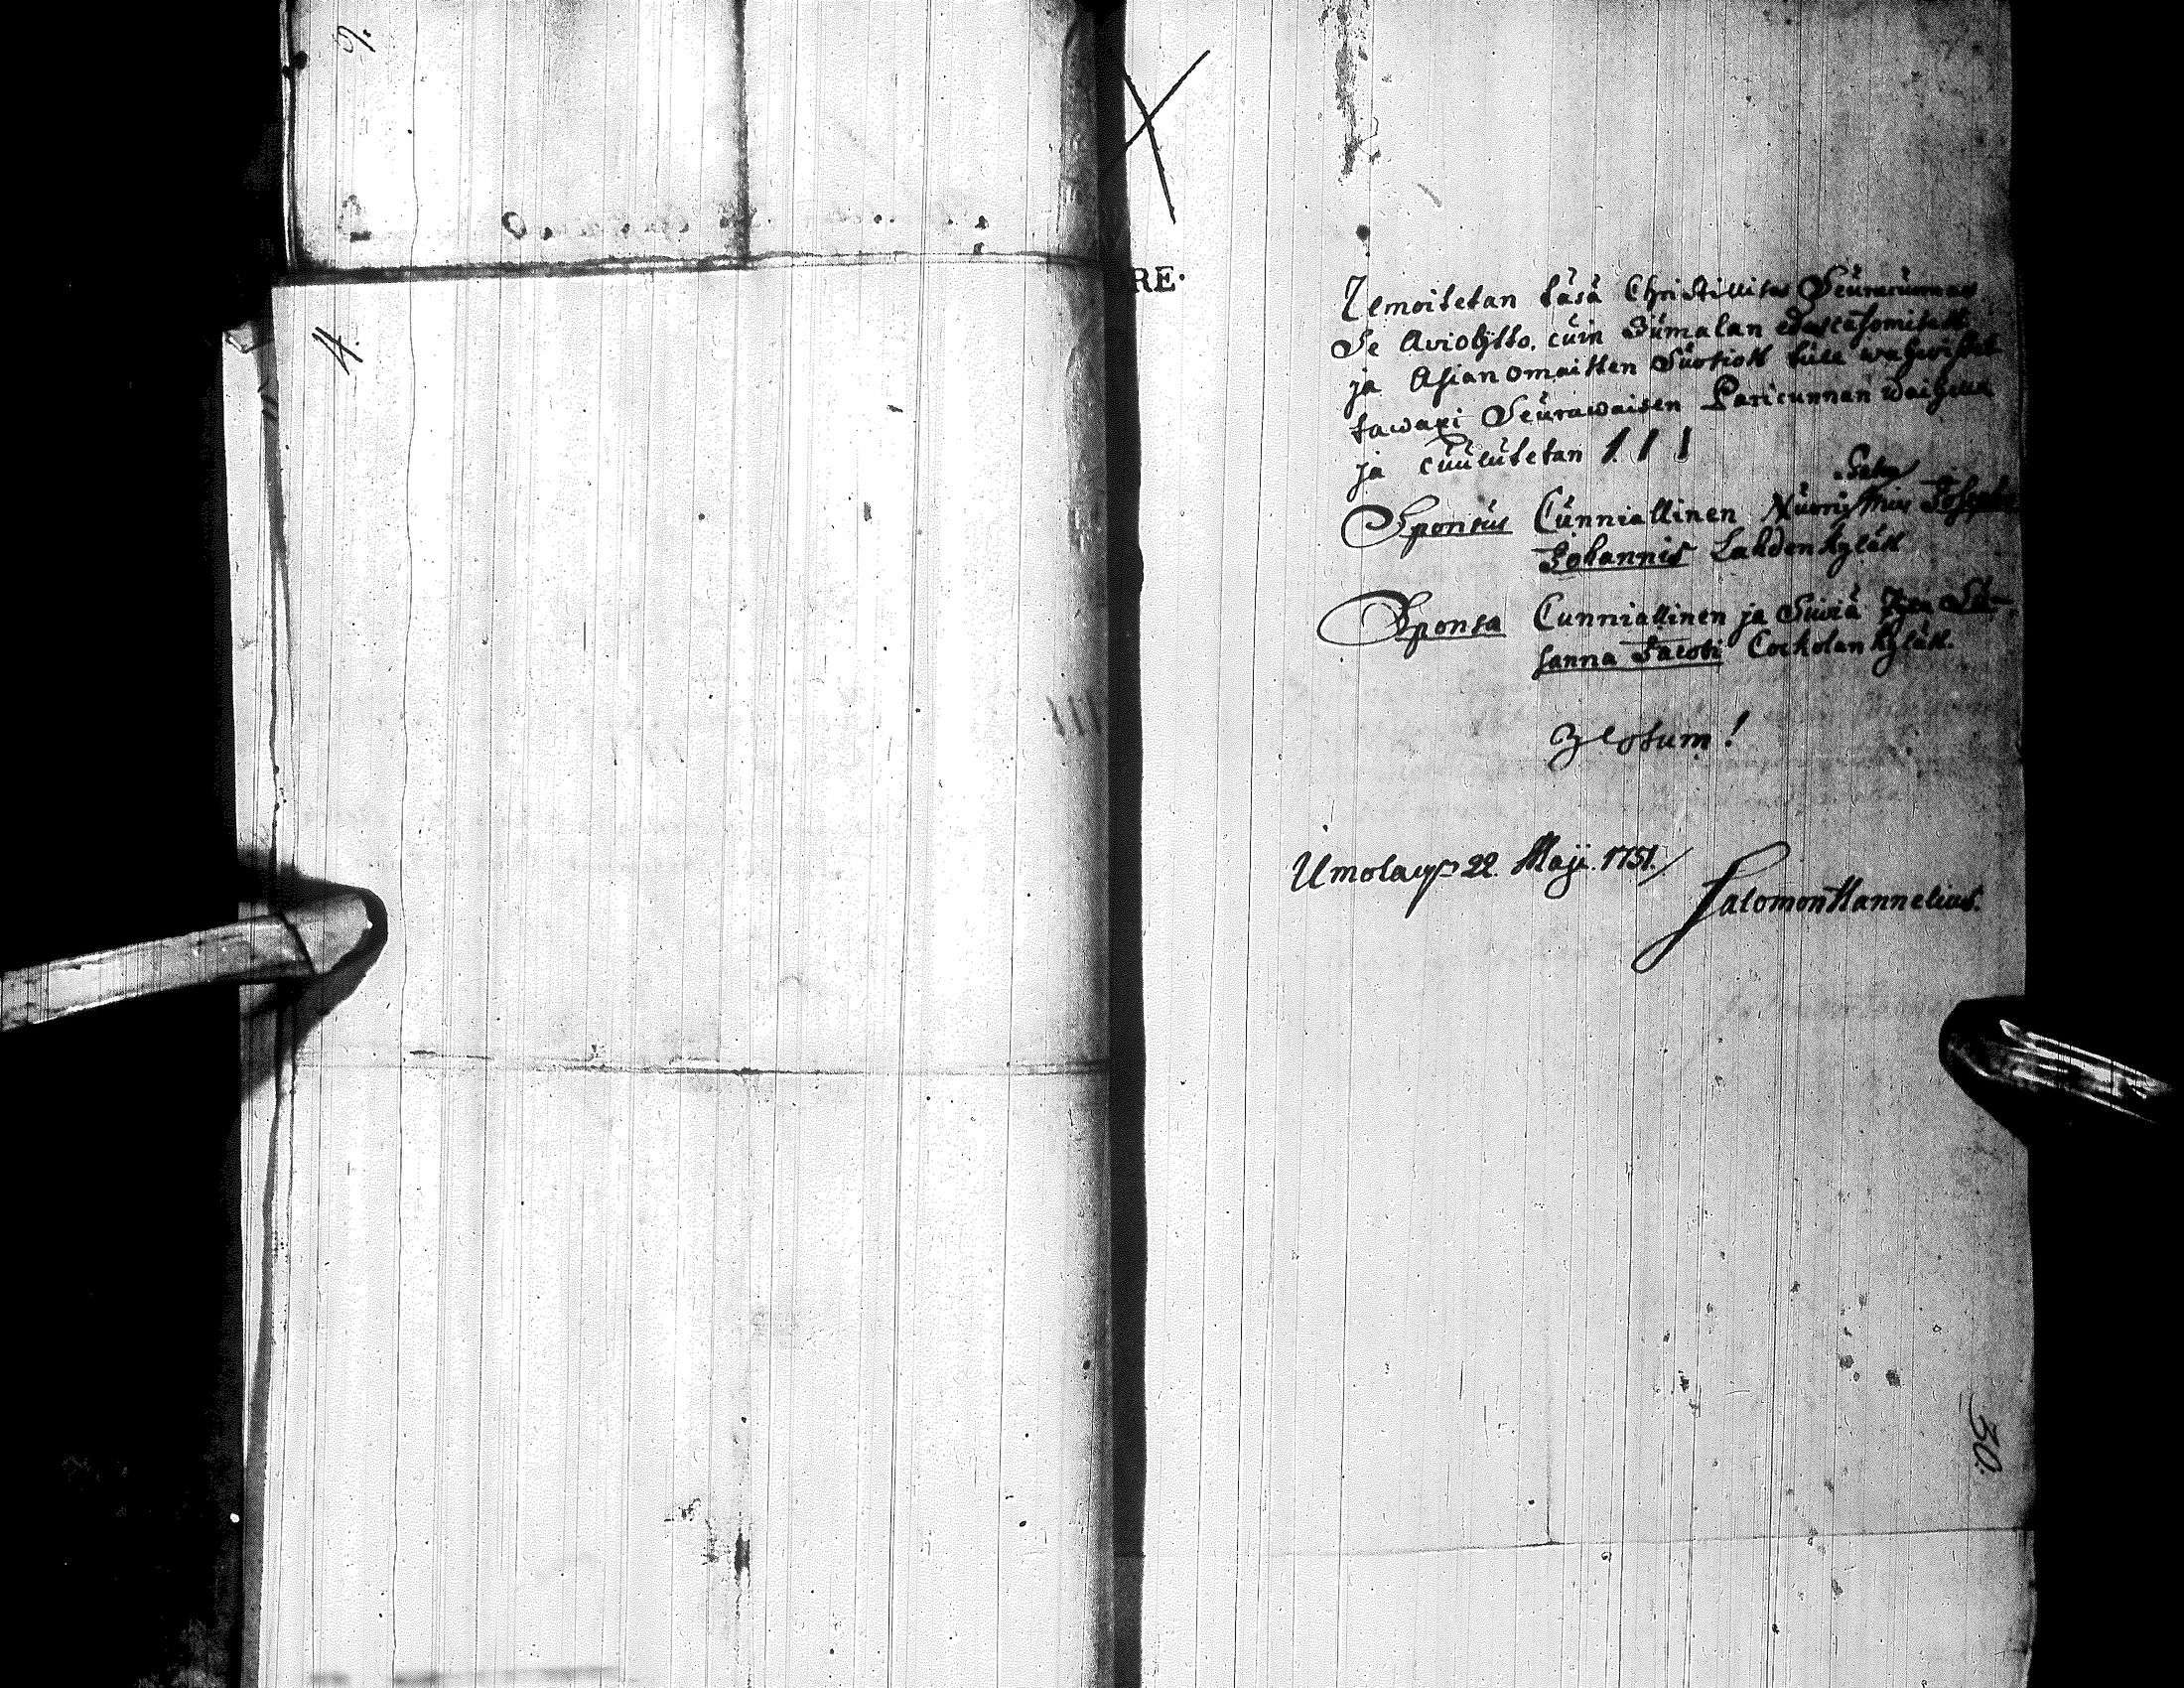 9.
4.
RE.
Ilmoitetan täsä Christillises Seurakunnas
Se Avioljtto, cuin Jumalan edescäzomisest
ja Asianomaisten Suosiost tule wahwistet
tawaxi Seurawaisen Pariscunnan waihella
ja cuulutetan 1 1 1
Sponsus Cunniallinen Nuori Mies Joseph
Johannis Lahden Kyläst
Sponsa Cunniallinen ja Siwiä Su-
sanna Jacobi Cockolan Kyläst.
Umola 22. Maji. 1751.
Salomon Hannelius.
30.